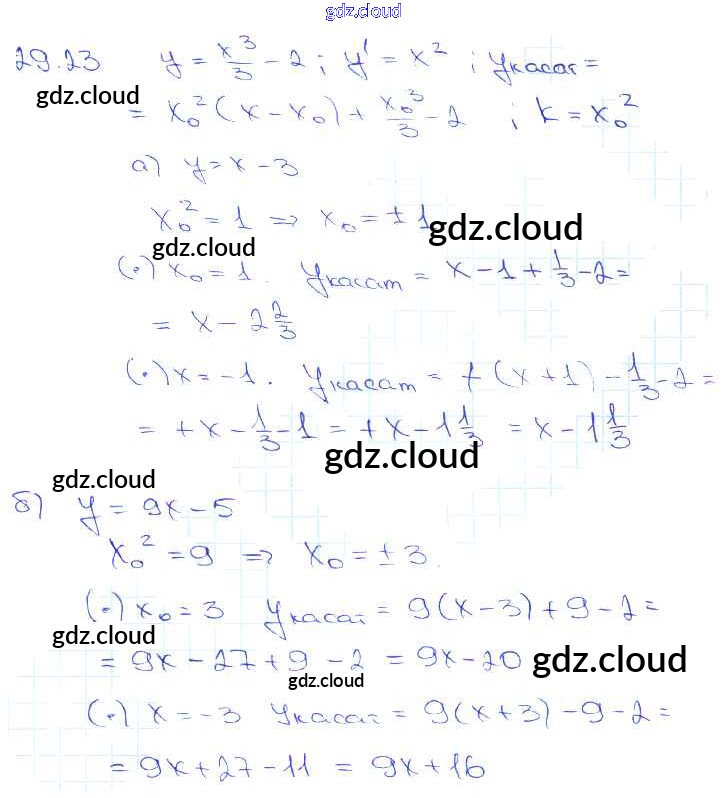 gdz.cloud
29.23 y = x³/3 - 2 ; y' = x² ; yкасат =
gdz.cloud
= x₀²(x - x₀) + x₀³/3 - 2 ; k = x₀²
а) y = x - 3
x₀² = 1 => x₀ = ± 1
gdz.cloud
gdz.cloud
(·) x₀ = 1. yкасат = x - 1 + 1/3 - 2 =
= x - 2 2/3
(·) x = -1. yкасат = + (x + 1) - 1/3 - 2 =
= + x - 1/3 - 1 = + x - 1 1/3 = x - 1 1/3
gdz.cloud
gdz.cloud
б) y = 9x - 5
x₀² = 9 => x₀ = ± 3.
(·) x₀ = 3 yкасат = 9(x - 3) + 9 - 2 =
gdz.cloud
= 9x - 27 + 9 - 2 = 9x - 20
gdz.cloud
gdz.cloud
(·) x = -3 yкасат = 9(x + 3) - 9 - 2 =
= 9x + 27 - 11 = 9x + 16